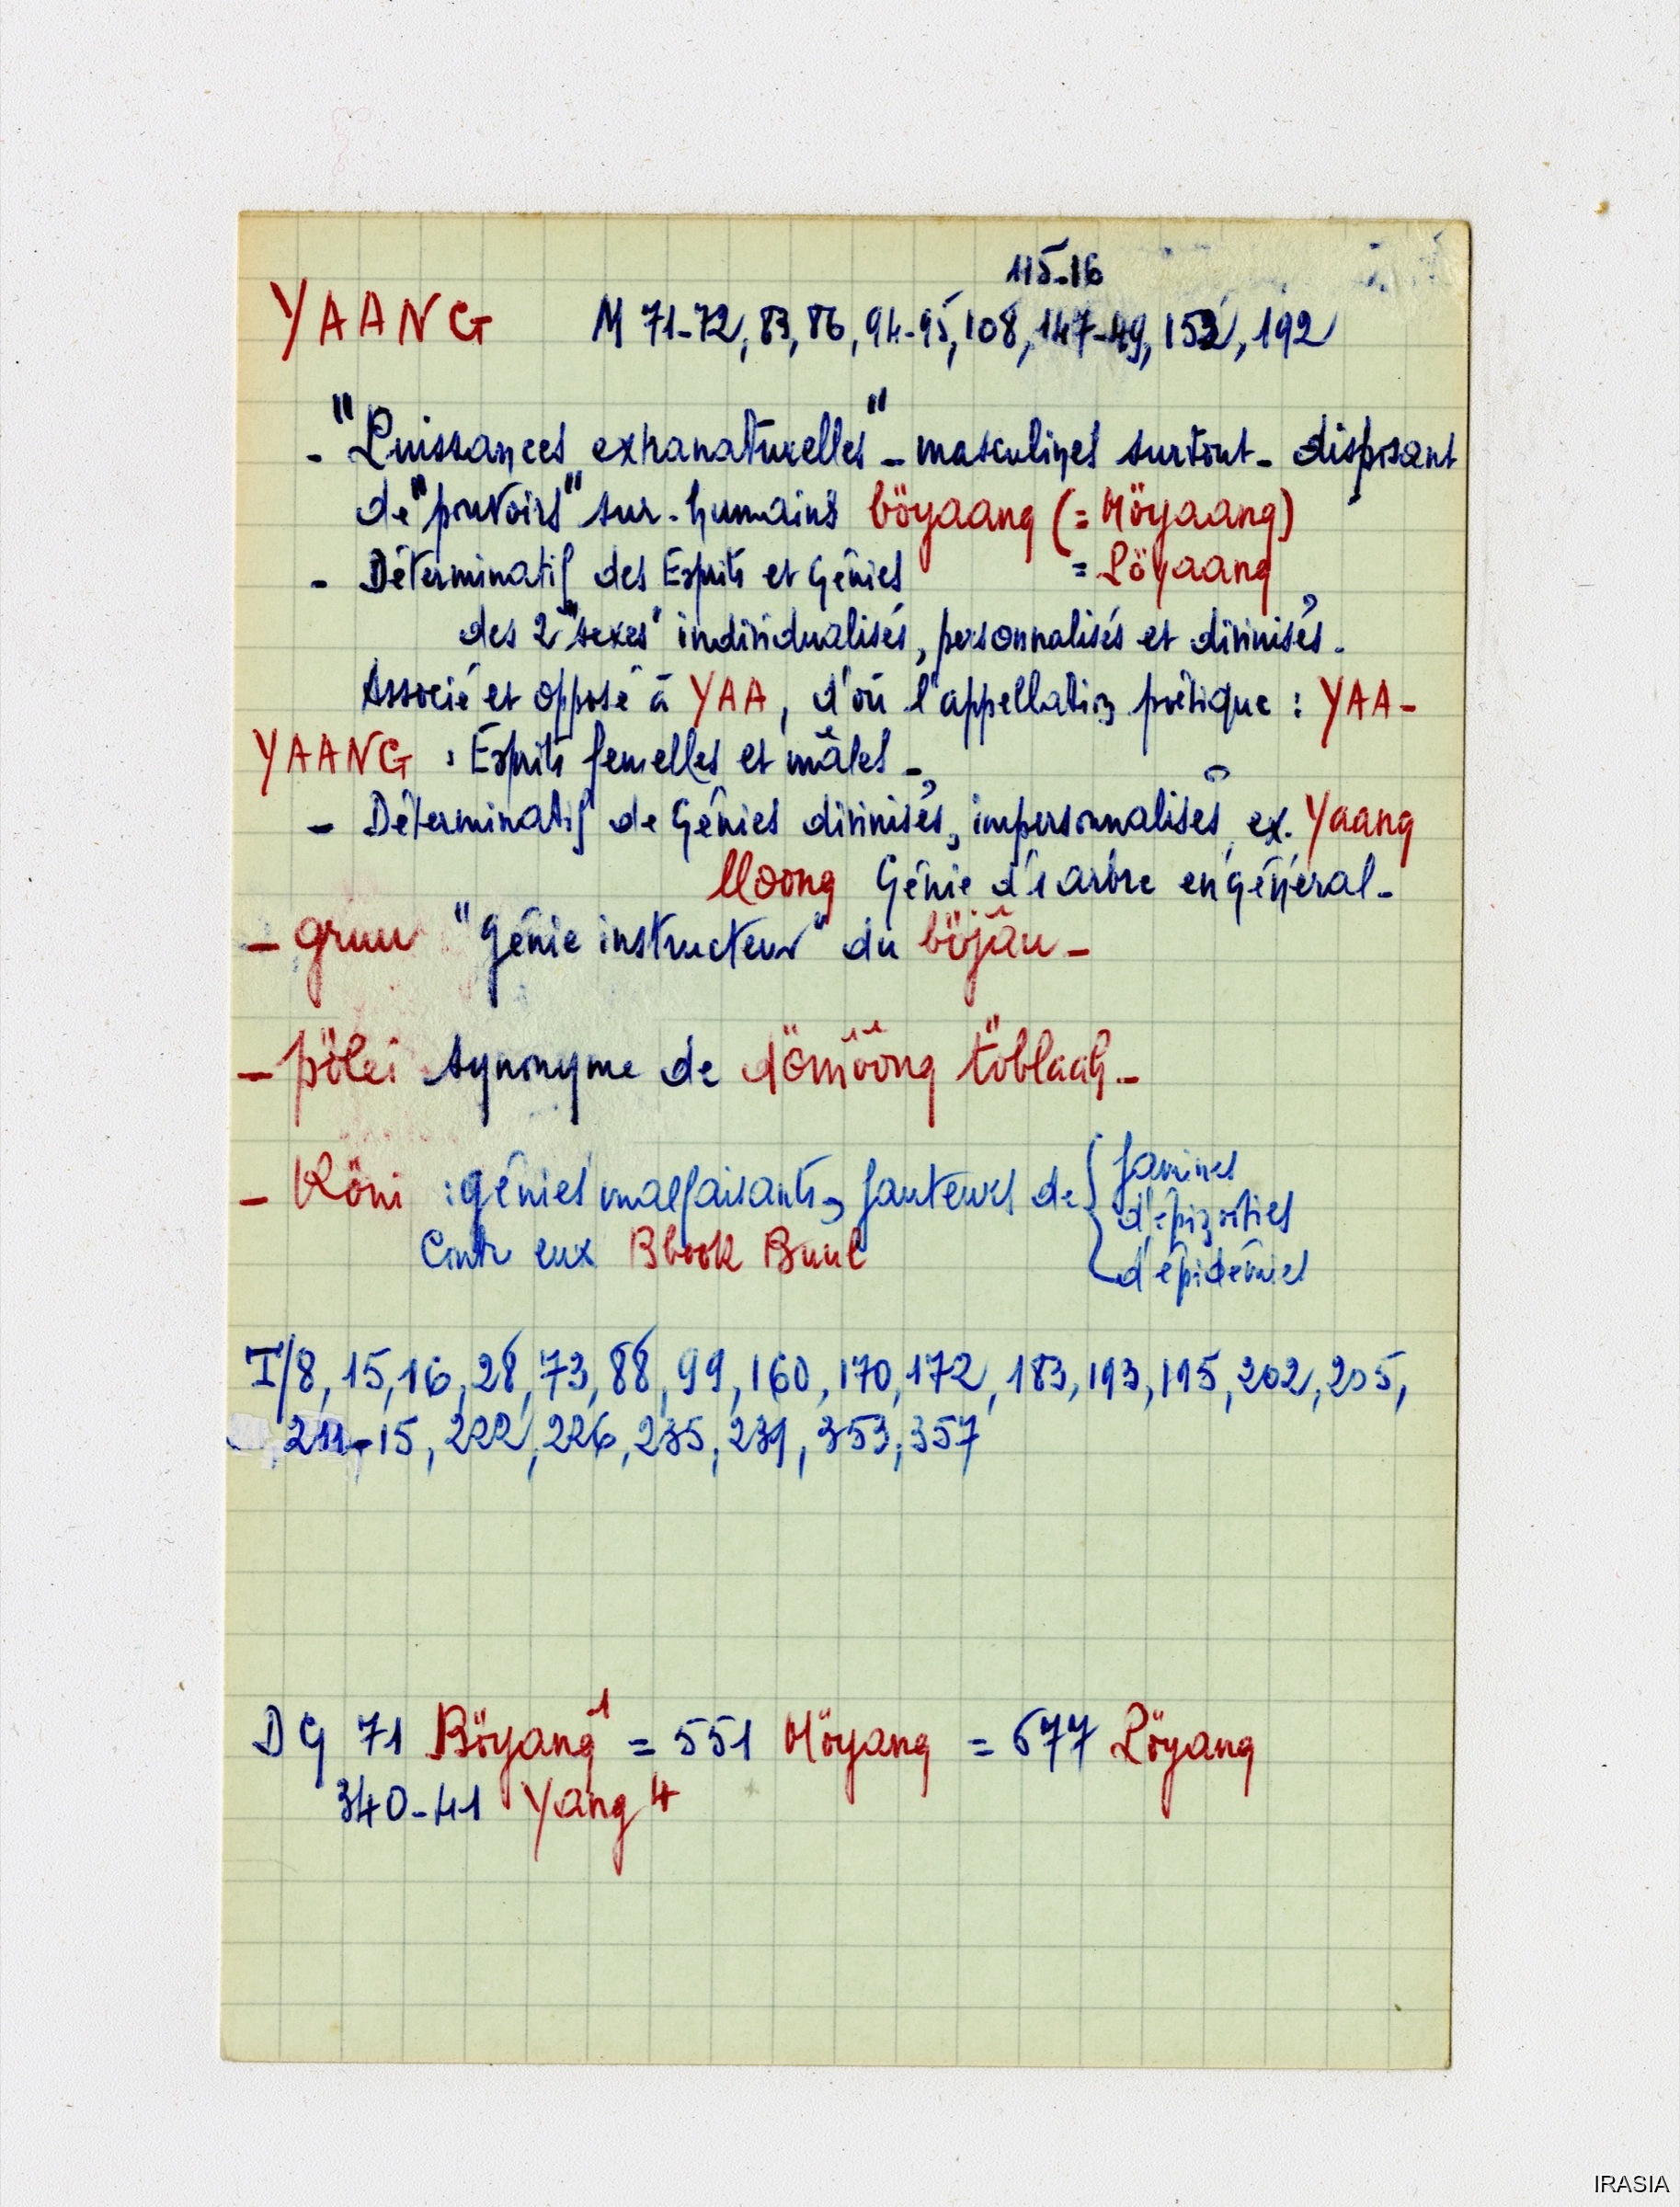 115-16
YAANG M 71-72, 83, 86, 94-95, 108, 147-49, 152, 192
- "Puissances extranaturelles" - masculines surtout - disposant
de "pouvoirs" sur-humains böyaang (= Möyaang)
- Déterminatif des Esprits et Génies = Löyaang
des 2 "sexes" individualisés, personnalisés et divinisés.
Associé et opposé à YAA, d'où l'appellation poétique : YAA-
YAANG : Esprits femelles et mâles -
- Déterminatif de Génies divinisés, impersonnalisés, ex. Yaang
Lloong Génie d'1 arbre en général -
- gruu "Génie instructeur" du böjâu -
- pölei synonyme de dömôông töblaah -
- Köni : génies malfaisants, fauteurs de { famines
d'épizooties
Contr eux Bbook Buul
d'épidémies
I/8, 15, 16, 28, 73, 88, 99, 160, 170, 172, 183, 193, 195, 202, 205,
211-15, 222, 226, 235, 239, 353, 357
DG 71 Böyang¹ = 551 Möyang = 677 Löyang
340-41 Yang 4
IRASIA